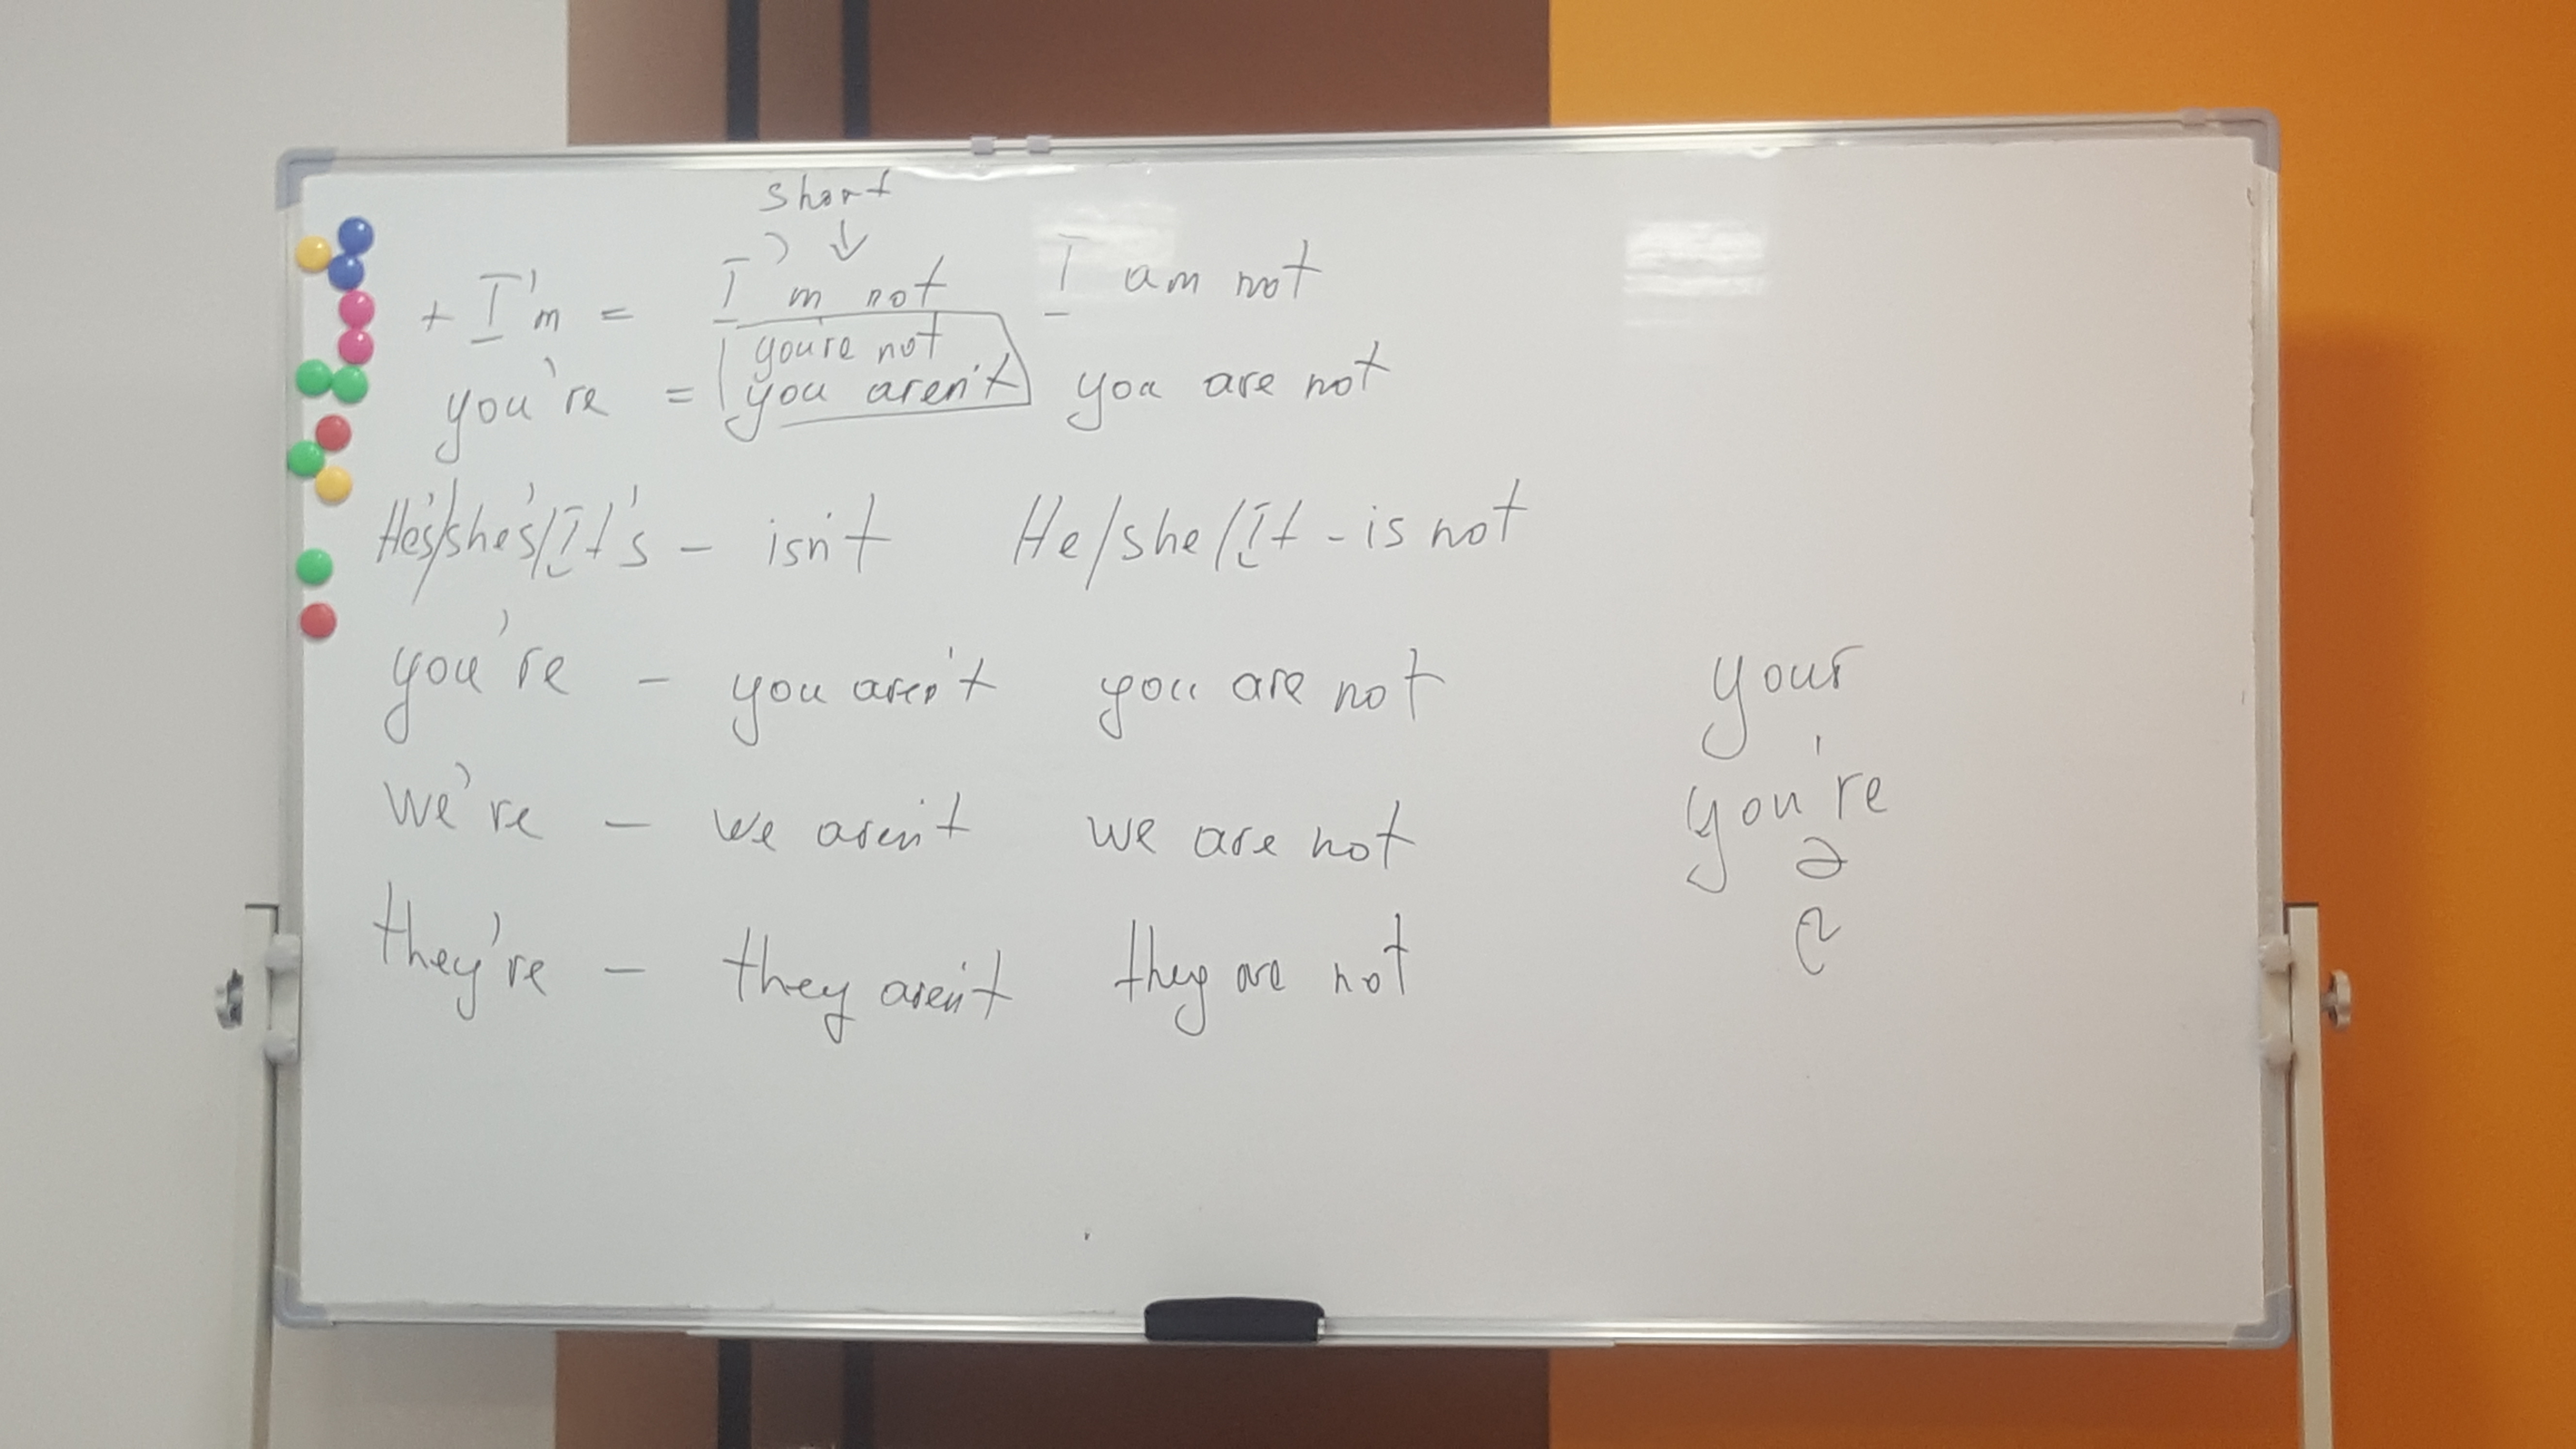 short
+ I'm = I'm not I am not
you're not
you're = you aren't you are not
He's/she's/It's - isn't He/she/It - is not
you're - you aren't you are not
your
we're - we aren't we are not
you're
they're - they aren't they are not